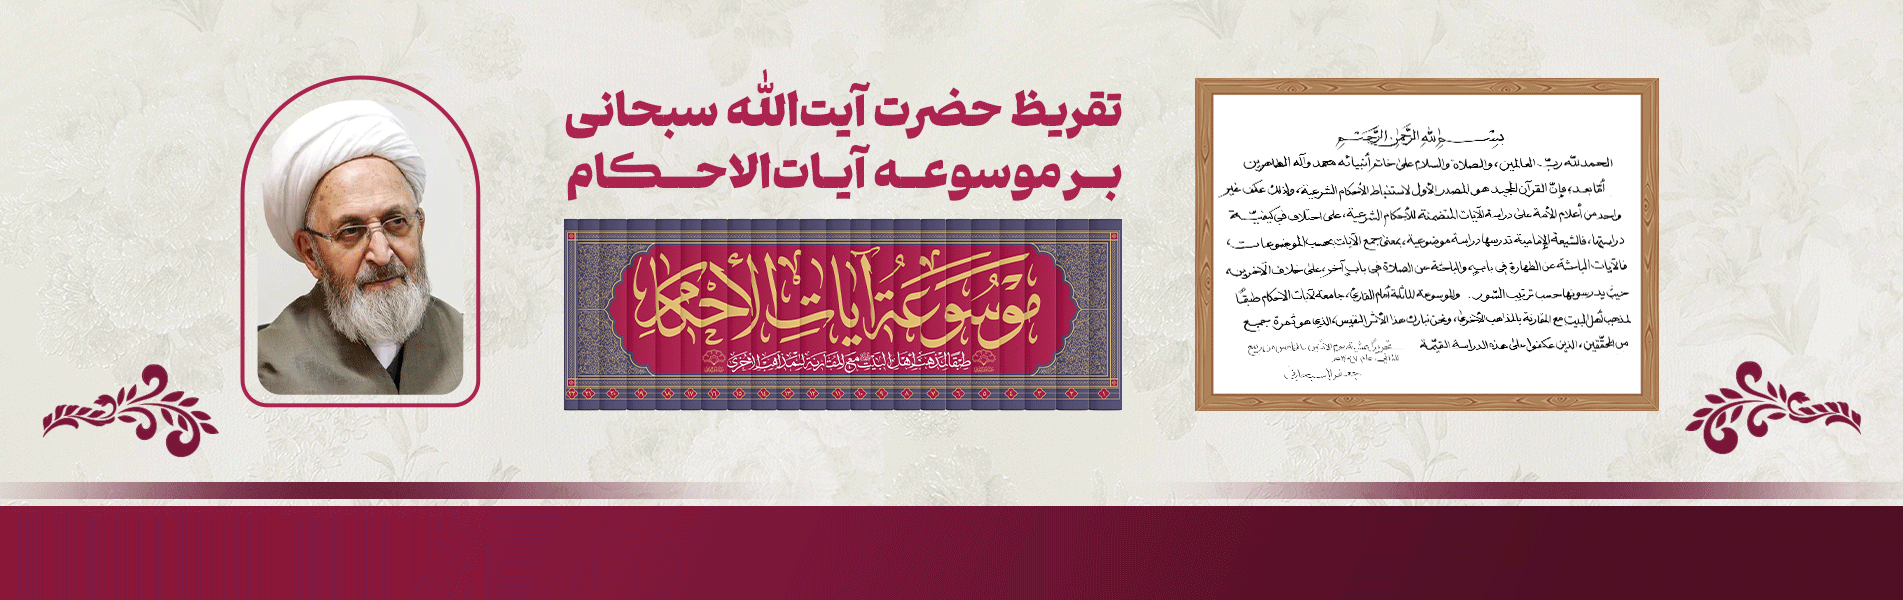 تقریظ حضرت آیت‌الله سبحانی
بر موسوعه آیات‌الاحکام
مَوْسُوعَة آيَاتِ الأَحْكَام
طبقا لمذهب أهل البيت مع المقارنة بالمذاهب الأخرى
٢٢ ٢١ ٢٠ ١٩ ١٨ ١٧ ١٦ ١٥ ١٤ ١٣ ١٢ ١١ ١٠ ٩ ٨ ٧ ٦ ٥ ٤ ٣ ٢ ١
بسم الله الرحمن الرحيم
الحمد لله رب العالمين، والصلاة والسلام على خاتم أنبيائه محمد وآله الطاهرين
أما بعد، فإن القرآن المجيد هو المصدر الأول لاستنباط الأحكام الشرعية، ولذلك عكف غير
واحد من أعلام الأمة على دراسة الآيات المتضمنة للأحكام الشرعية، على اختلاف في كيفية
دراستها، فالشيعة الإمامية تدرسها دراسة موضوعية، بمعنى جمع الآيات بحسب الموضوعات،
فالآيات الباحثة عن الطهارة في باب، والباحثة عن الصلاة في باب آخر، على خلاف الآخرين
حيث يدرسونها حسب ترتيب السور. والموسوعة الماثلة أمام القارئ، جامعة لآيات الأحكام طبقًا
لمذهب أهل البيت مع المقارنة بالمذاهب الأخرى، ونحن نبارك هذا الأثر النفيس، الذي هو ثمرة جميع
من المحققين، الذين عكفوا على هذه الدراسة القيّمة
جعفر السبحاني